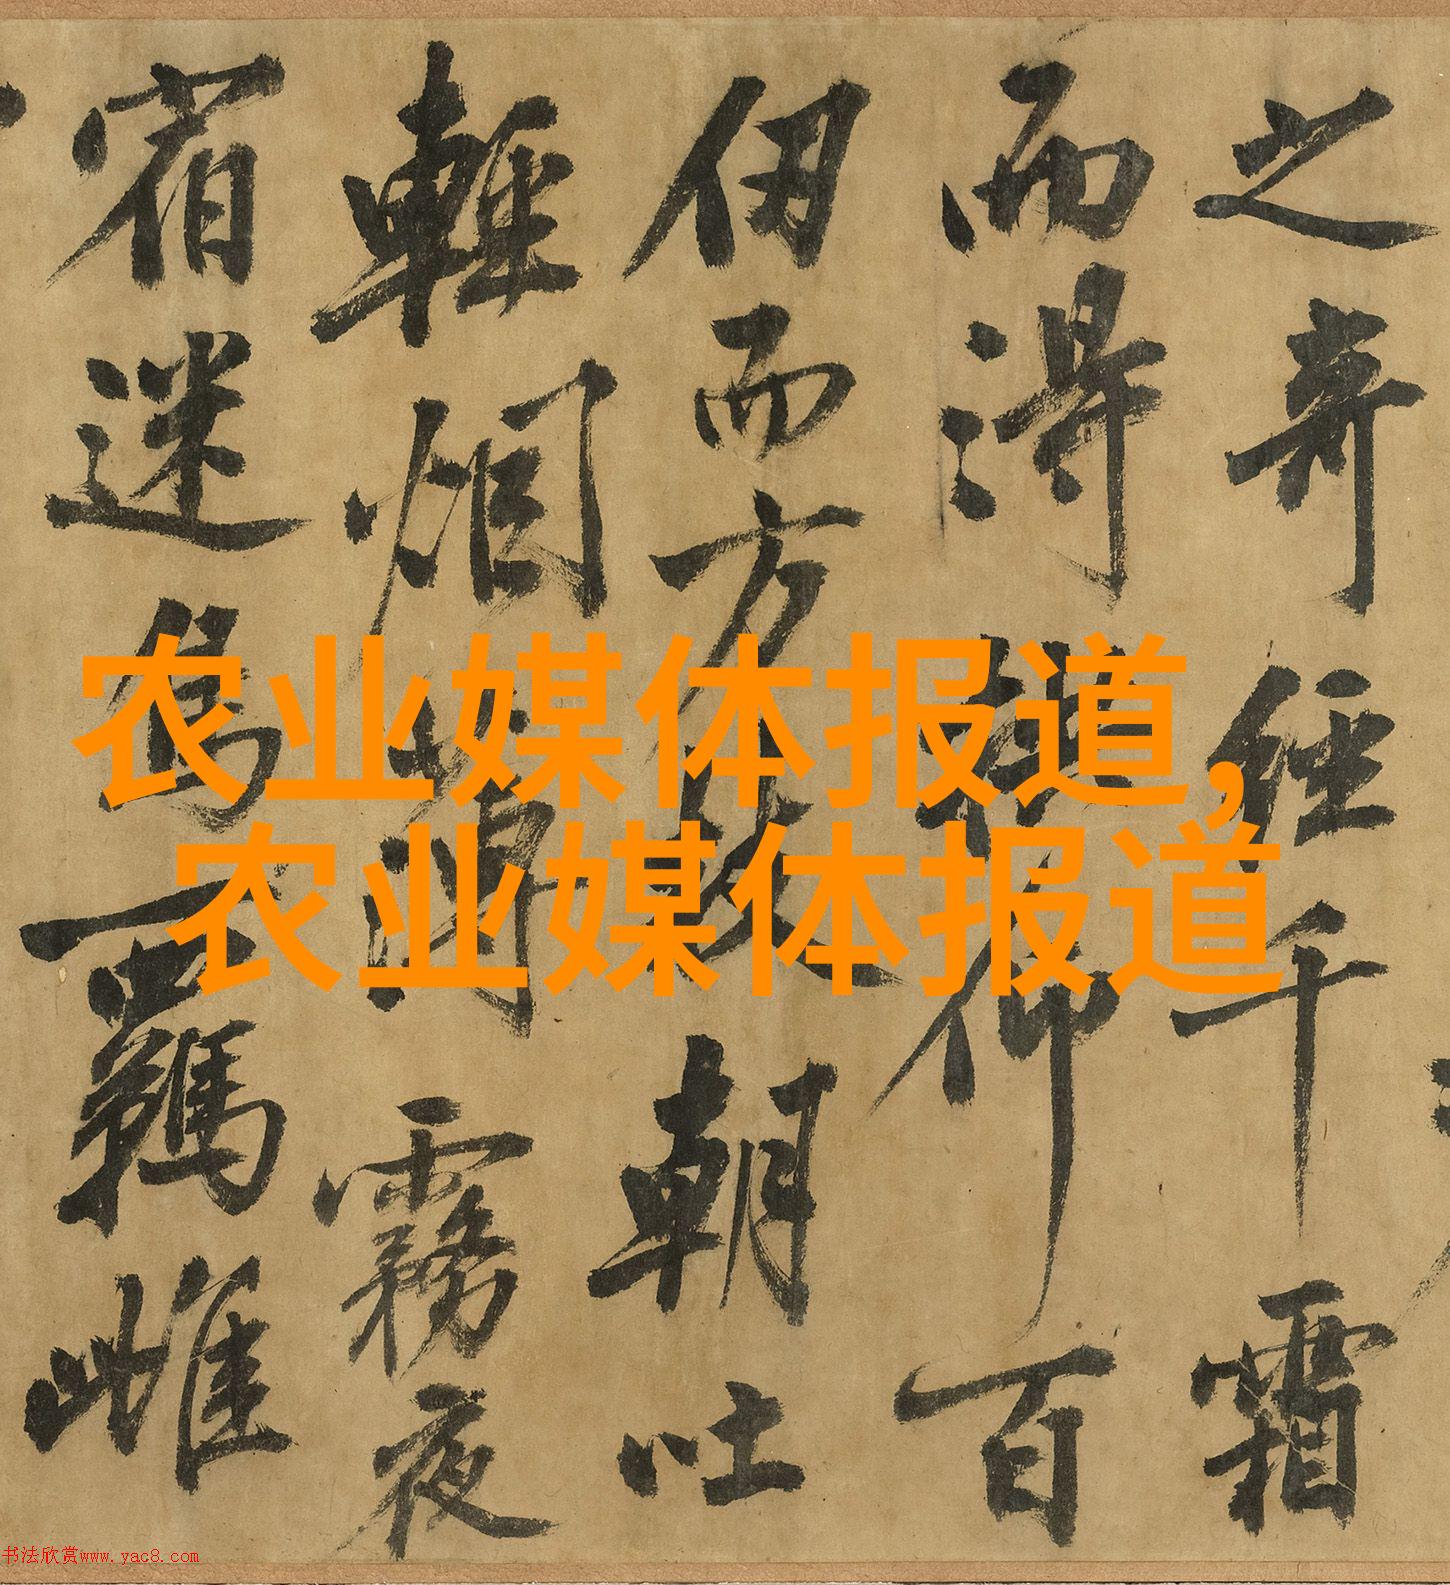 之奇經千霜
而得拱仰百
仞而方枝朝吐
輕烟薄霧夜
宿迷鳥羈雌
农业媒体报道,
农业媒体报道
书法欣赏www.yac8.com